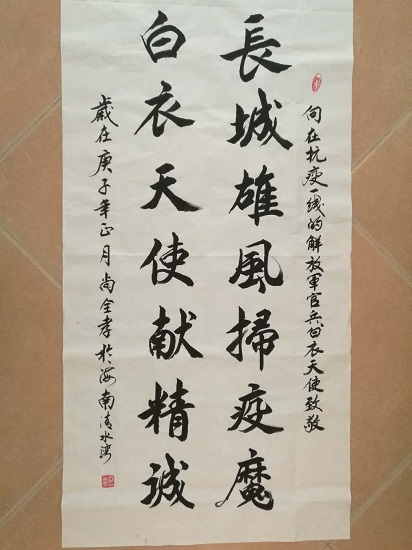 向在抗疫一线的解放軍官兵白衣天使致敬
長城雄風掃疫魔
白衣天使献精誠
歲在庚子年正月尚全孝於海南清水灣